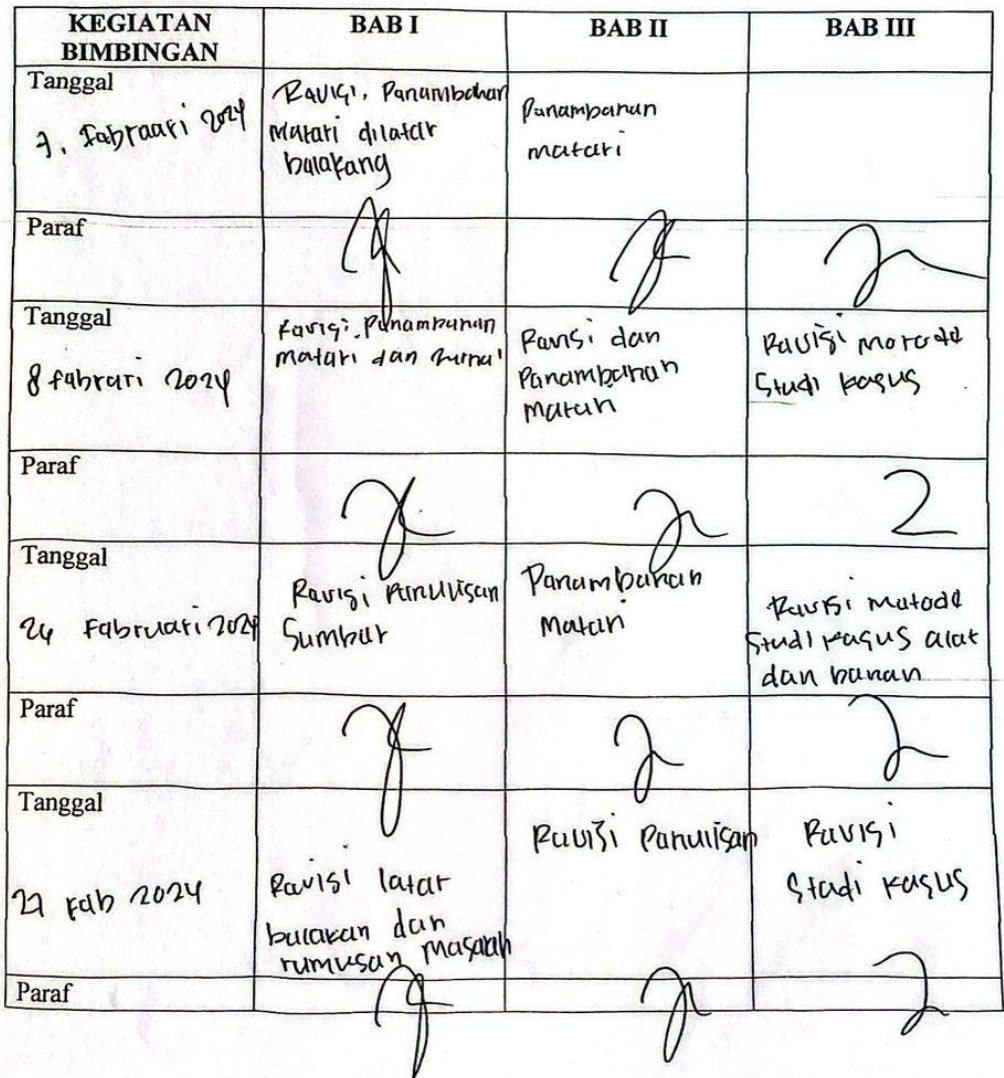 KEGIATAN BIMBINGAN BAB I BAB II BAB III
Tanggal
7. Fabruari 2024
Ravisi, Panambahan
Matari dilatar
balakang
Panambahan
matari
Paraf
Tanggal
8 fabruari 2024
Ravisi, Panambahan
matari dan
Ravisi dan
Panambahan
Matari
Ravisi Matoda
Studi kasus
Paraf
Tanggal
Fabruari 2024
Ravisi Panulisan
Sumbar
Panambahan
Matari
Ravisi Matoda
Studi kasus alat
dan bahan
Paraf
Tanggal
Fab 2024
Ravisi latar
balakan dan
rumusan Masalah
Ravisi Panulisan
Ravisi
Studi kasus
Paraf